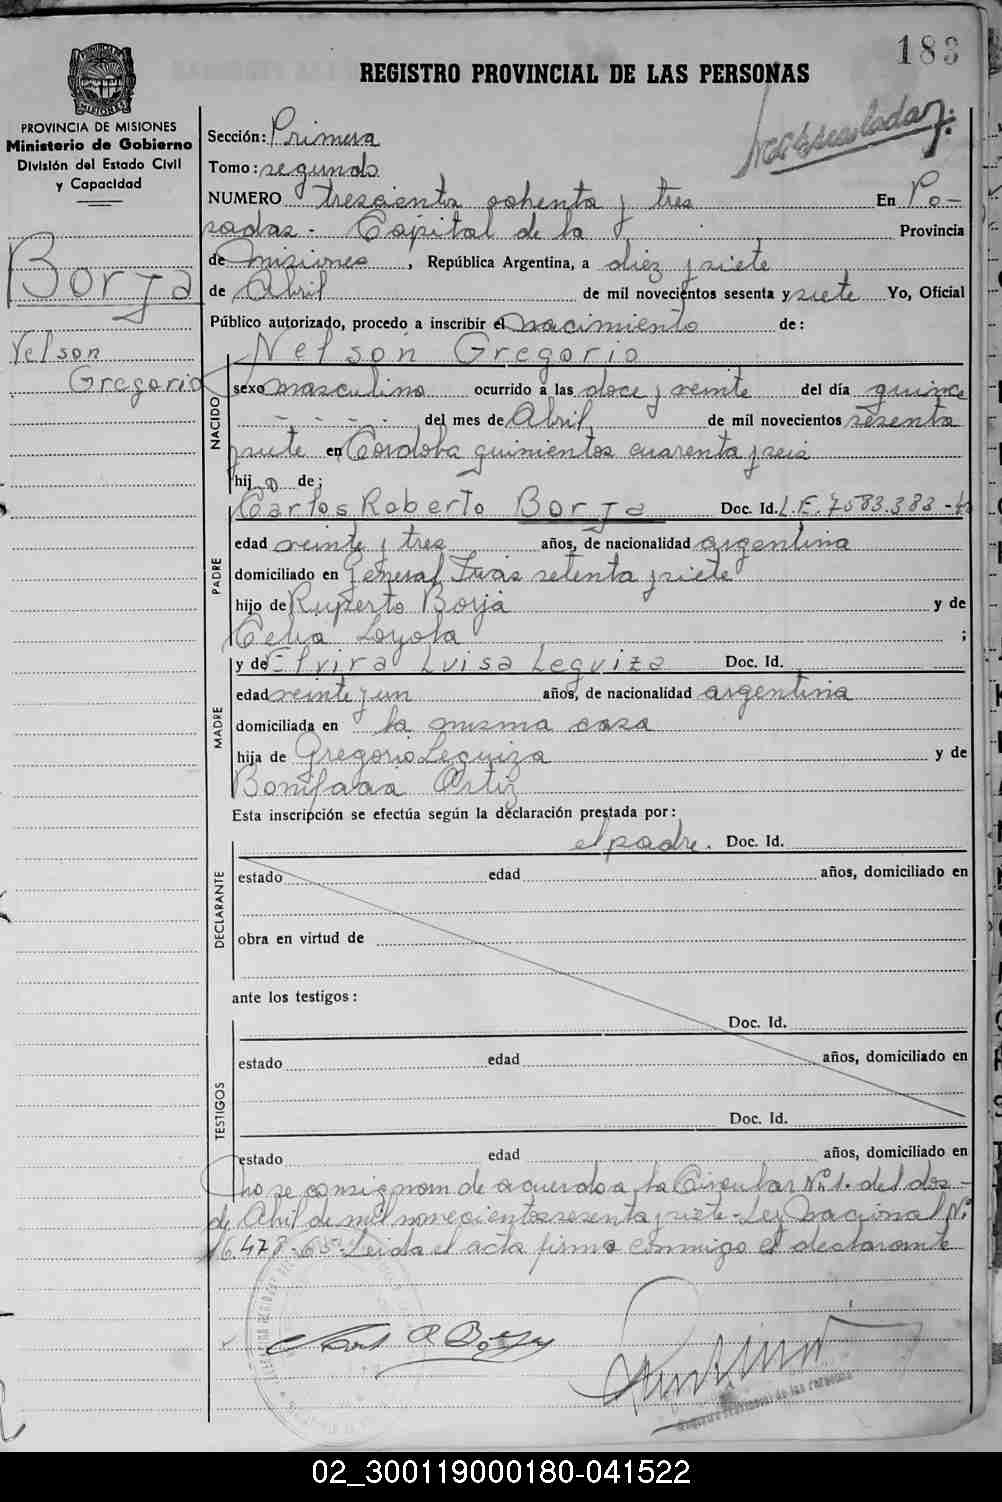 183
REGISTRO PROVINCIAL DE LAS PERSONAS
PROVINCIA DE MISIONES
PROVINCIA DE MISIONES
Ministerio de Gobierno
División del Estado Civil
y Capacidad
Borja
Nelson
Gregorio
Sección: Primera
Tomo: segundo
NUMERO trescientos ochenta y tres En Po-
sadas - Capital de la Provincia
de Misiones, República Argentina, a diez y siete
de Abril de mil novecientos sesenta y siete Yo, Oficial
Público autorizado, procedo a inscribir el nacimiento de:
Nelson Gregorio
NACIDO
sexo masculino ocurrido a las doce y veinte del día quince
- - - - del mes de Abril de mil novecientos sesenta
y siete en Cordoba quinientos cuarenta y seis
hijo de;
Carlos Roberto Borja Doc. Id. L.E. 7583.383
PADRE
edad veinte y tres años, de nacionalidad argentina
domiciliado en General Frias setenta y siete
hijo de Ruperto Borja y de
Celia Loyola ;
y de Elvira Luisa Leguiza Doc. Id.
MADRE
edad veinte y un años, de nacionalidad argentina
domiciliada en la misma casa
hija de Gregorio Leguiza y de
Bonifacia Ortiz
Esta inscripción se efectúa según la declaración prestada por:
el padre. Doc. Id.
DECLARANTE
estado edad años, domiciliado en
obra en virtud de
ante los testigos:
Doc. Id.
TESTIGOS
estado edad años, domiciliado en
Doc. Id.
estado edad años, domiciliado en
no se consignan de acuerdo a la Circular Nº 1. del dos-
de Abril de mil novecientos sesenta y siete - Ley Nacional Nº
16.478-65- Leida el acta firma conmigo el declarante
Registro Provincial de las Personas
02_300119000180-041522